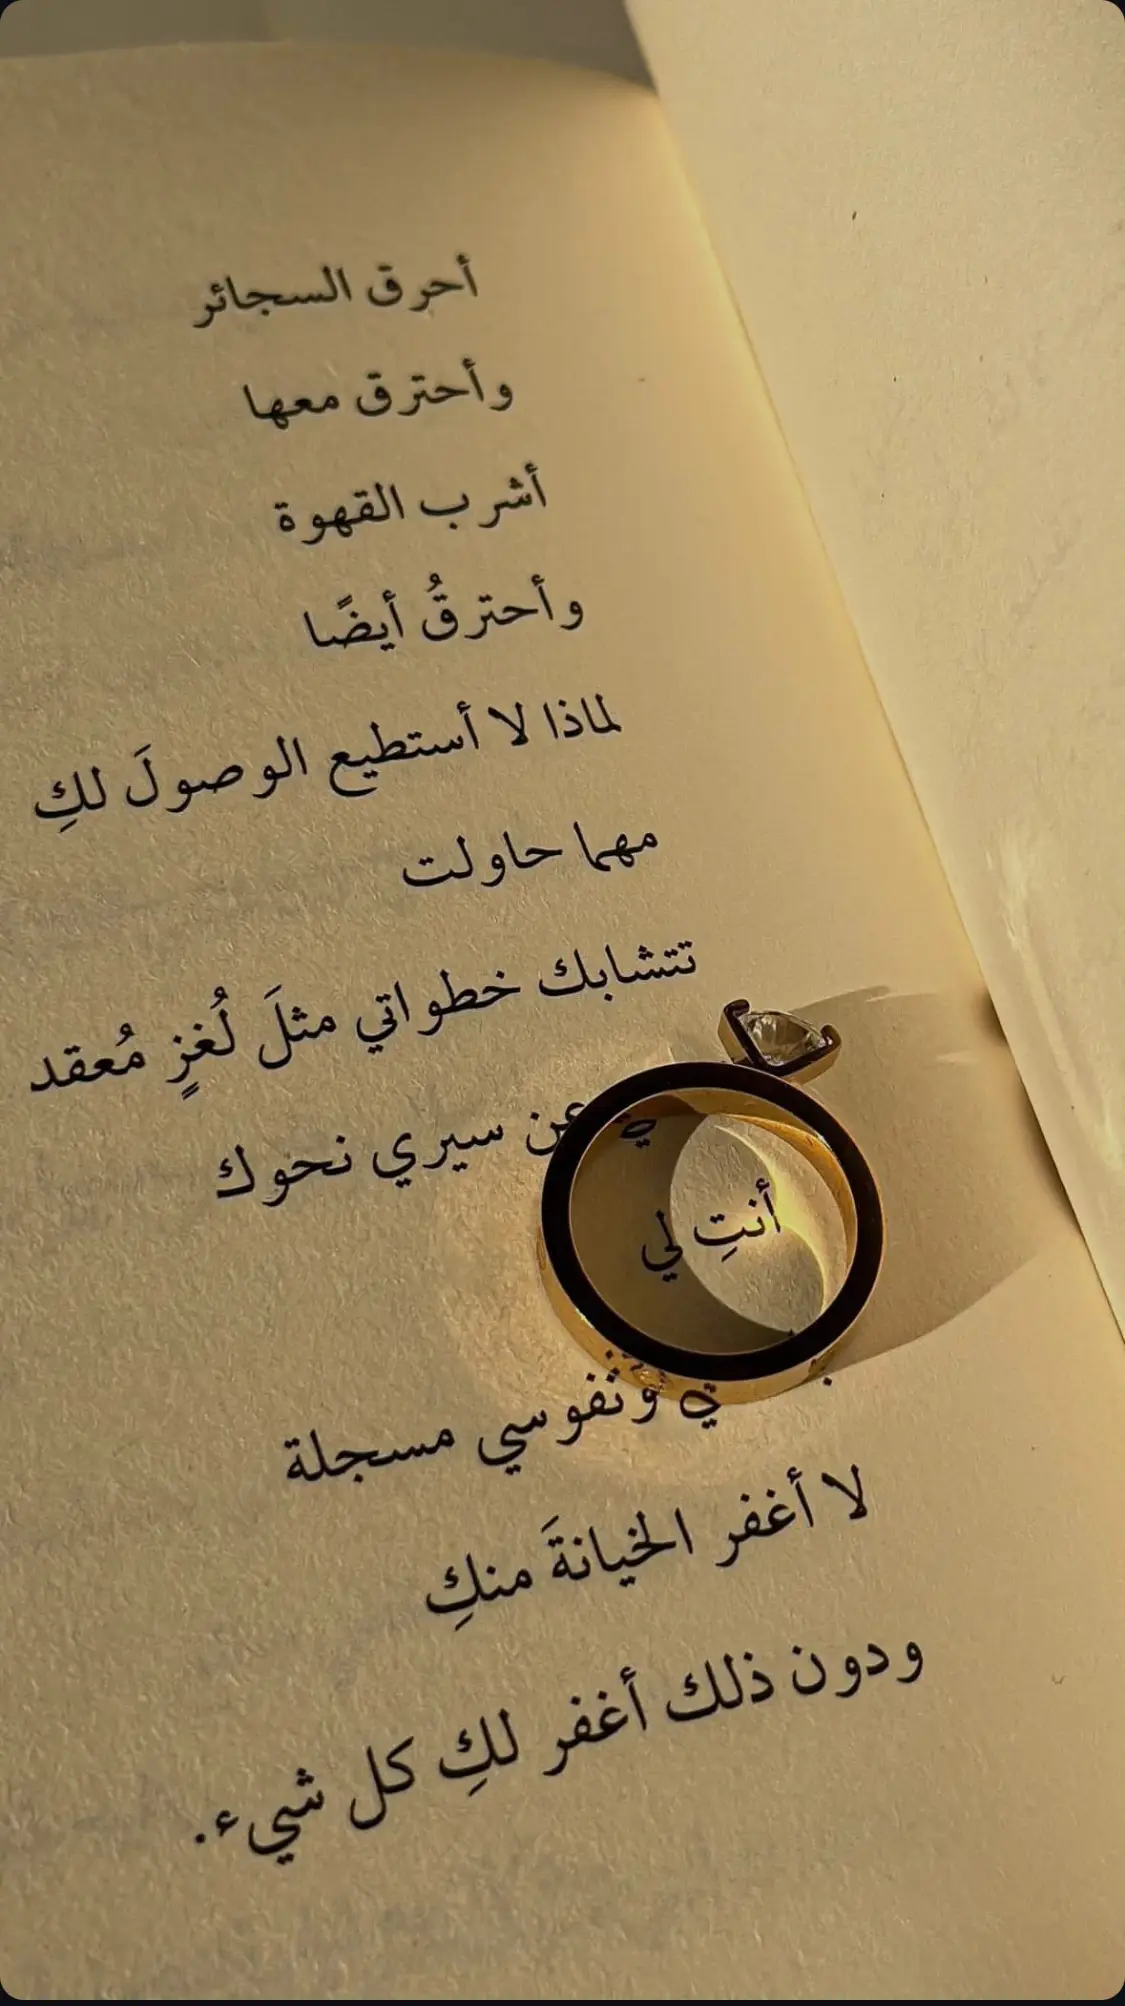 أحرق السجائر
وأحترق معها
أشرب القهوة
وأحترقُ أيضًا
لماذا لا أستطيع الوصولَ لكِ
مهما حاولت
تتشابك خطواتي مثلَ لُغزٍ مُعقد
عن سيري نحوك
أنتِ لي
مسجلة
لا أغفر الخيانةَ منكِ
ودون ذلك أغفر لكِ كل شيء.